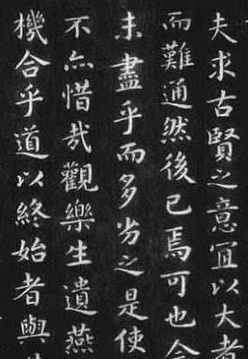 夫求古賢之意宜以大者
而難通然後已焉可也今
未盡乎而多劣之是使
不亦惜哉觀樂生遺燕
機合乎道以終始者與